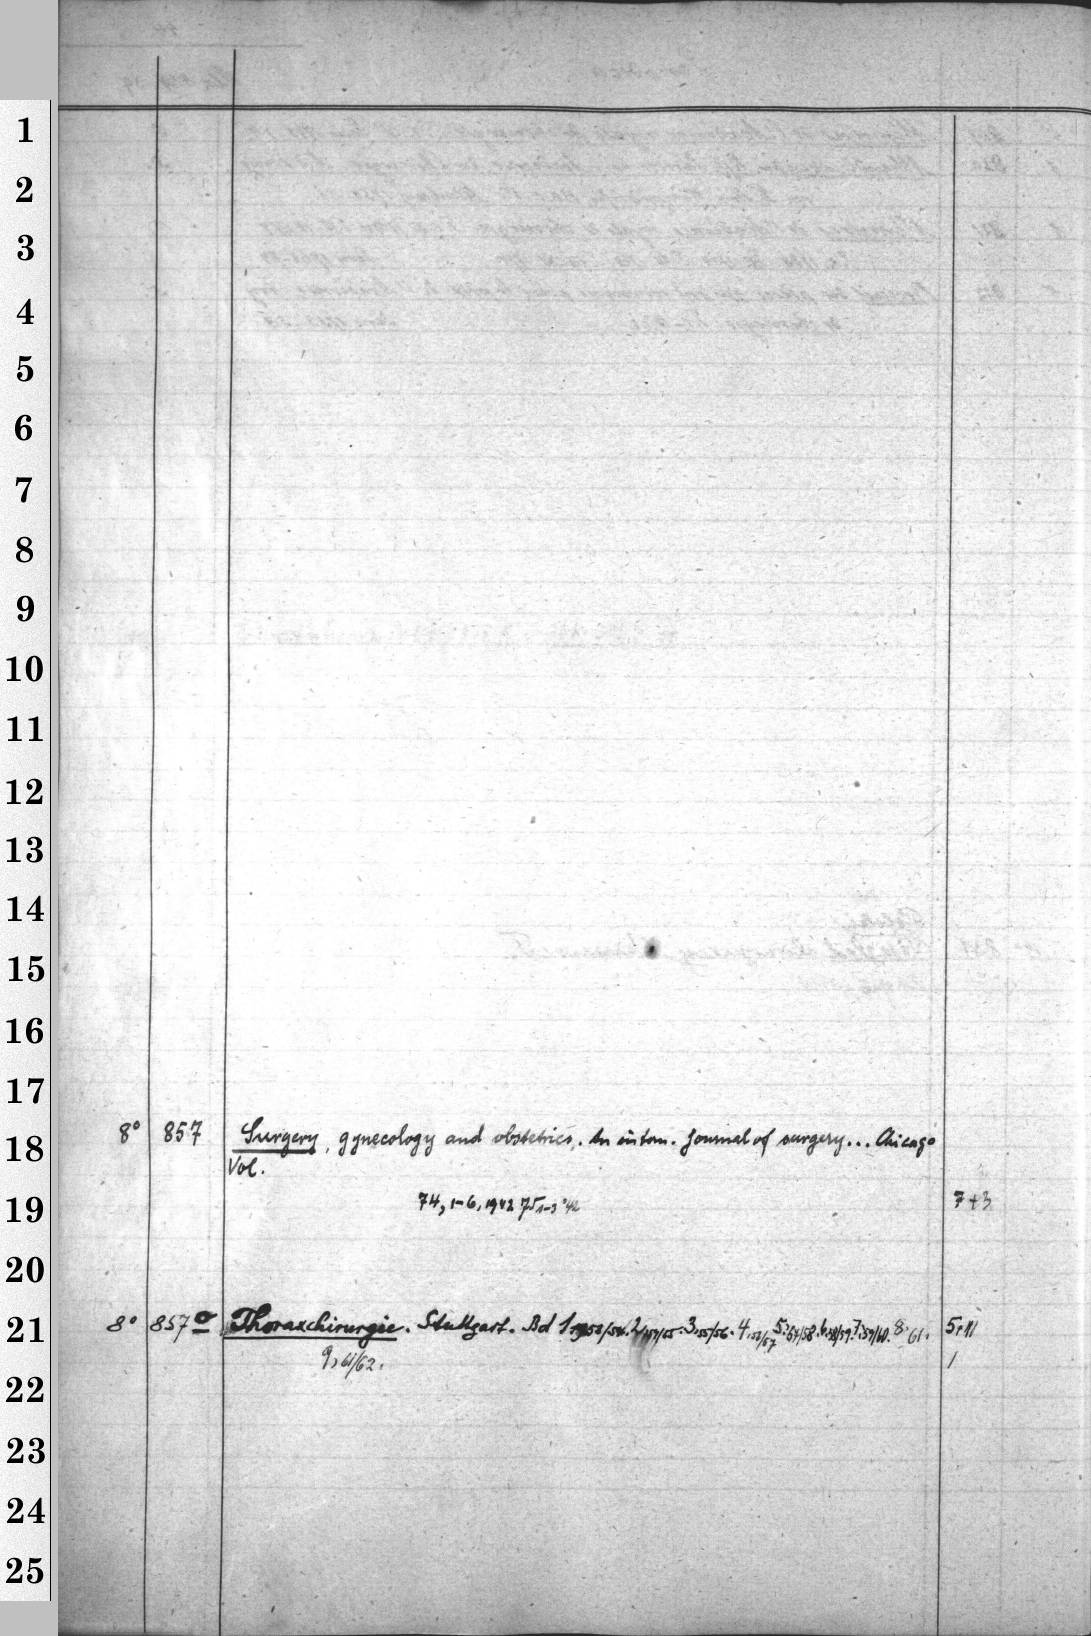 1
2
3
4
5
6
7
8
9
10
11
12
13
14
15
16
17
18
19
20
21
22
23
24
25
8° 857 Surgery, gynecology and obstetrics. An intern. journal of surgery... Chicago
Vol.
74, 1-6. 1942 75, 1-3 '42 7+3
8° 857 a Thoraxchirurgie. Stuttgart. Bd 1, 1953/54. 2, 1954/55. 3, 55/56. 4, 56/57 5, 57/58. 6, 58/59. 7, 59/60. 8, 61.
9, 61/62.